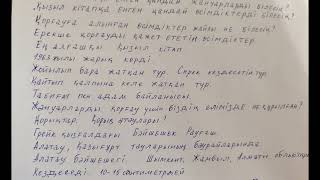 Қызыл кітапқа енген қандай өсімдіктерді білесің?
Қорғауға алынған өсімдіктер жайлы не білесің?
Ерекше қорғауды қажет ететін өсімдіктер
Ең алғашқы Қызыл кітап
1963 жылы жарық көрді.
Жойылып бара жатқан түр. Сирек кездесетін түр.
Қайтып қалпына келе жатқан түр.
Табиғат пен адам байланысы.
Жануарларды қорғау үшін біздің елімізде не құрылған?
Қорықтар. Қорық атаулы!
Грейк қызғалдағы Бәйшешек Рауғаш.
Алатау, Қазығұрт тауларының баурайларында
Алатау бәйшешегі Шымкент, Жамбыл, Алматы облыстары
Кездеседі. 10-15 сантиметрлей